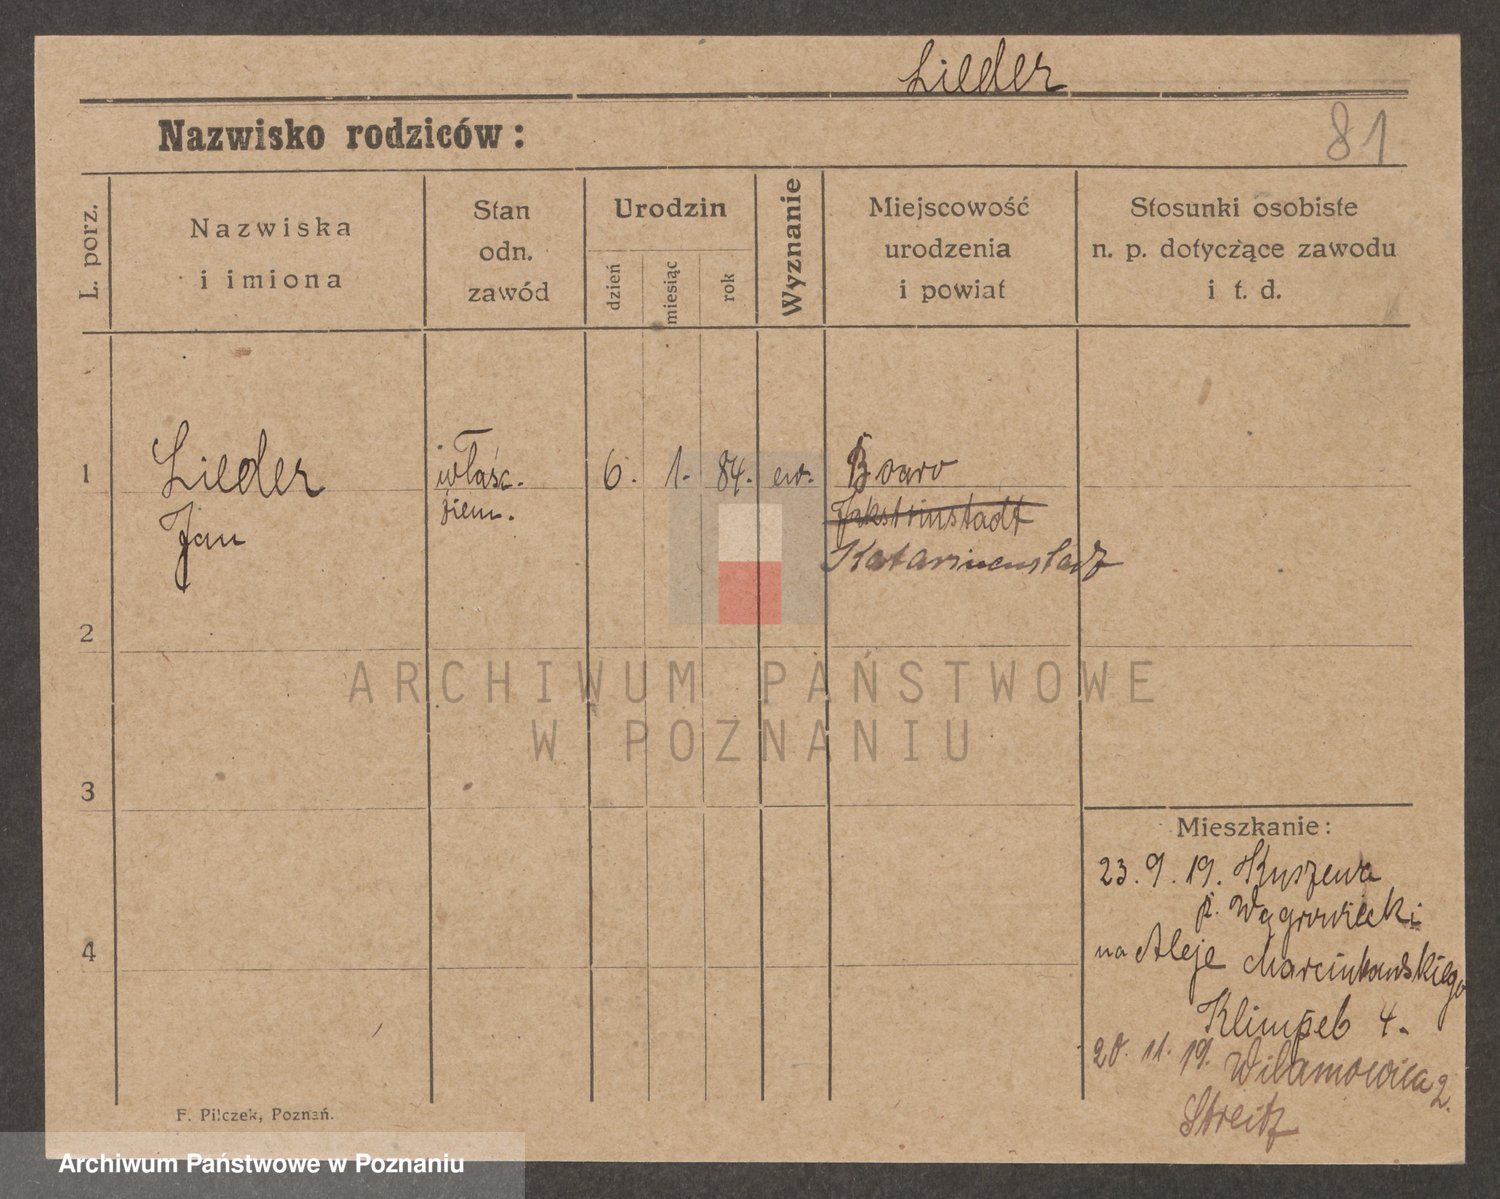 Lieder
Nazwisko rodziców:
81
L. porz.
Nazwiska
i imiona
Stan
odn.
zawód
Urodzin
dzień
miesiąc
rok
Wyznanie
Miejscowość
urodzenia
i powiat
Stosunki osobiste
n. p. dotyczące zawodu
i t. d.
1
Lieder
Jan
właśc.
ziem.
6. 1. 84. ew.
Boaro
Katarinenstadt
2
3
4
ARCHIWUM PAŃSTWOWE
W POZNANIU
Mieszkanie:
23. 9. 19. Kuszewa
p. Wągrowiecki
na Aleje Marcinkowskiego
Klimpel 4.
20. 11. 19. Wilamowica 2.
Streitz
F. Pilczek, Poznań.
Archiwum Państwowe w Poznaniu